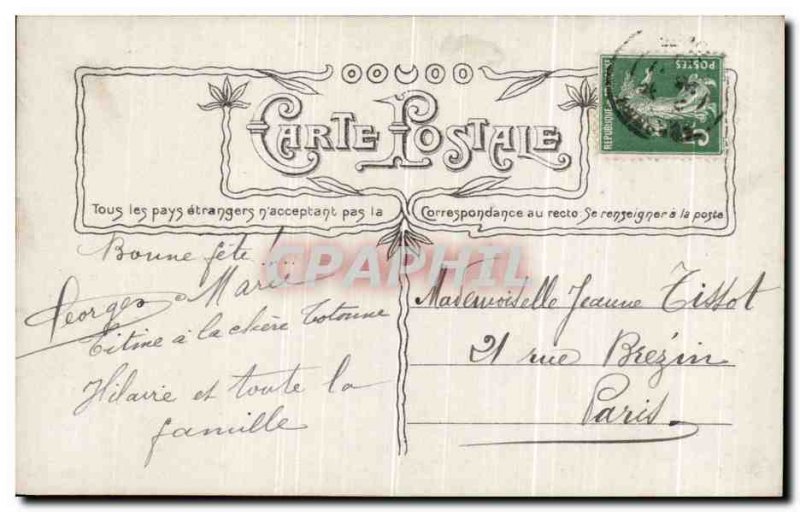 CARTE POSTALE
Tous les pays étrangers n'acceptant pas la Correspondance au recto Se renseigner à la poste
POSTES
REPUBLIQUE
5
CPAPHIL
Bonne fête !
Georges Marie
Titine à la chère Totonne
Hilaire et toute la
famille
Mademoiselle Jeanne Tissot
21 rue Brézin
Paris